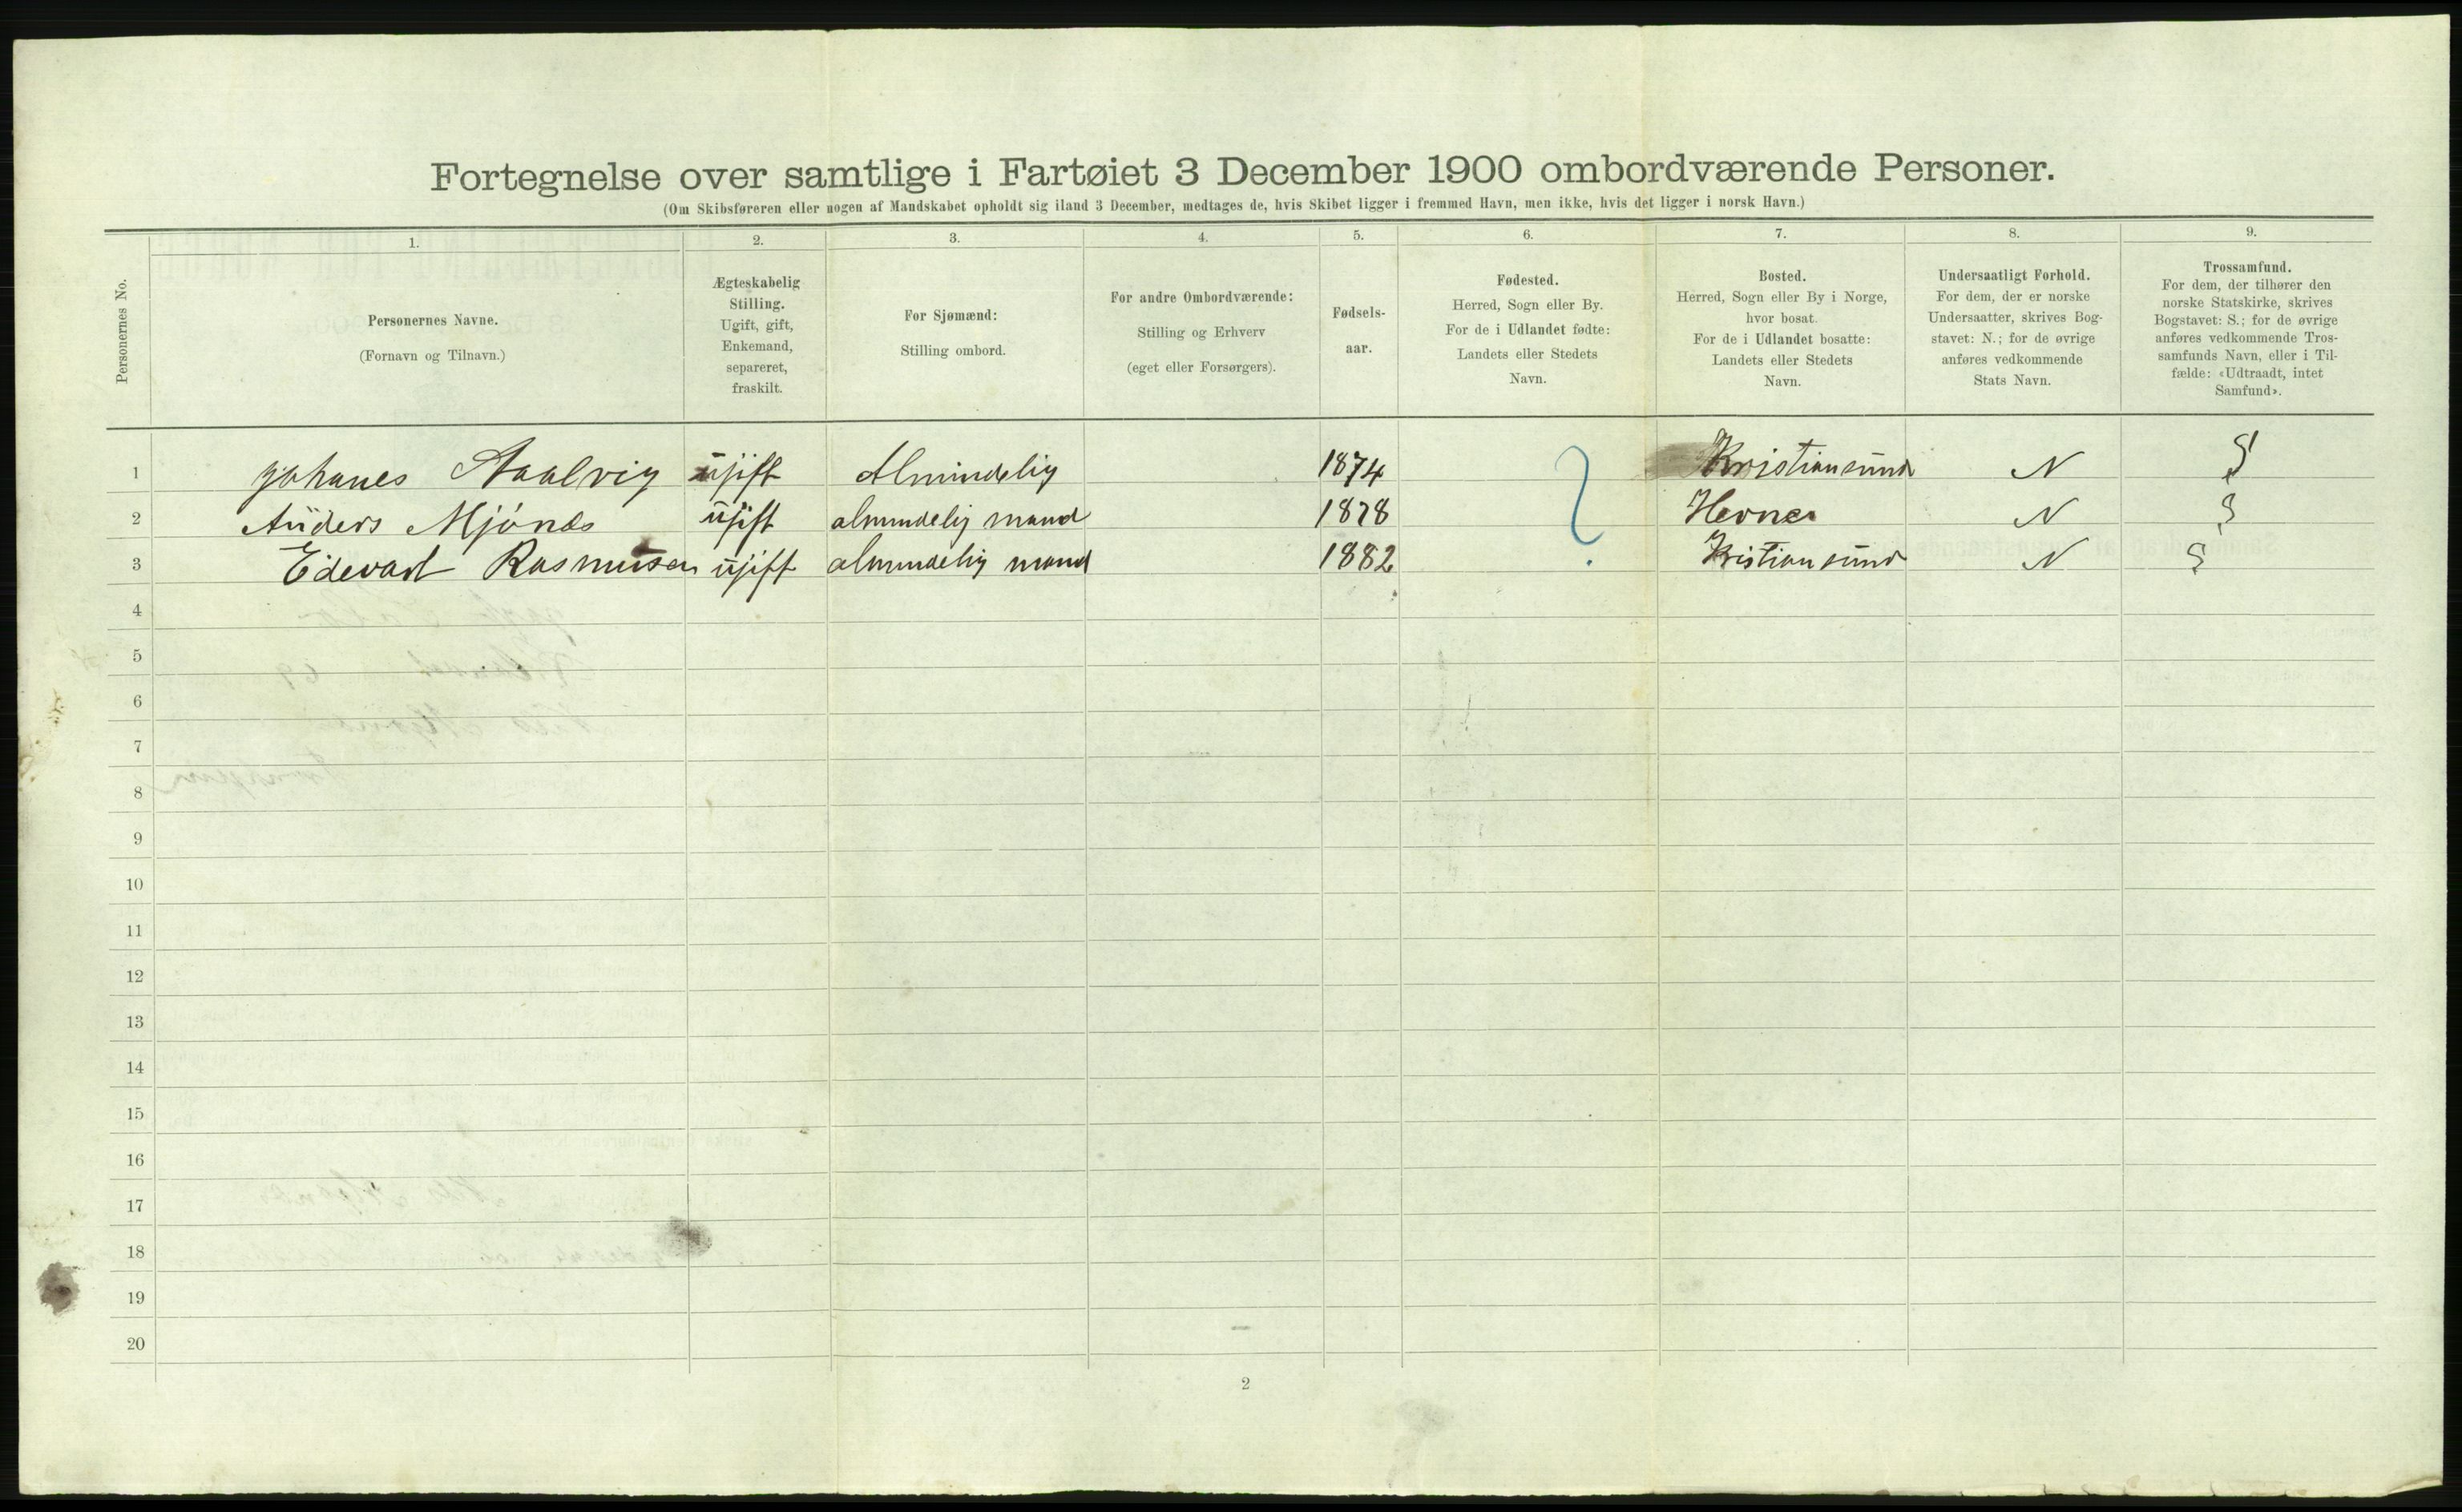 Fortegnelse over samtlige i Fartøiet 3 December 1900 ombordværende Personer.
(Om Skibsføreren eller nogen af Mandskabet opholdt sig iland 3 December, medtages de, hvis Skibet ligger i fremmed Havn, men ikke, hvis det ligger i norsk Havn.)
Personernes No.
1.
Personernes Navne.
(Fornavn og Tilnavn.)
2.
Ægteskabelig
Stilling.
Ugift, gift,
Enkemand,
separeret,
fraskilt.
3.
For Sjømænd:
Stilling ombord.
4.
For andre Ombordværende:
Stilling og Erhverv
(eget eller Forsørgers).
5.
Fødsels-
aar.
6.
Fødested.
Herred, Sogn eller By.
For de i Udlandet fødte:
Landets eller Stedets
Navn.
7.
Bosted.
Herred, Sogn eller By i Norge,
hvor bosat.
For de i Udlandet bosatte:
Landets eller Stedets
Navn.
8.
Undersaatligt Forhold.
For dem, der er norske
Undersaatter, skrives Bog-
stavet: N.; for de øvrige
anføres vedkommende
Stats Navn.
9.
Trossamfund.
For dem, der tilhører den
norske Statskirke, skrives
Bogstavet: S.; for de øvrige
anføres vedkommende Tros-
samfunds Navn, eller i Til-
fælde: «Udtraadt, intet
Samfund».
1 Johanes Aalvig ugift Almindelig 1874 ? Kristiansund N S
2 Anders Mjónes ugift almindelig mand 1878 Hevne N S
3 Edevart Rasmusen ugift almindelig mand 1882 Kristiansund N S
4
5
6
7
8
9
10
11
12
13
14
15
16
17
18
19
20
2